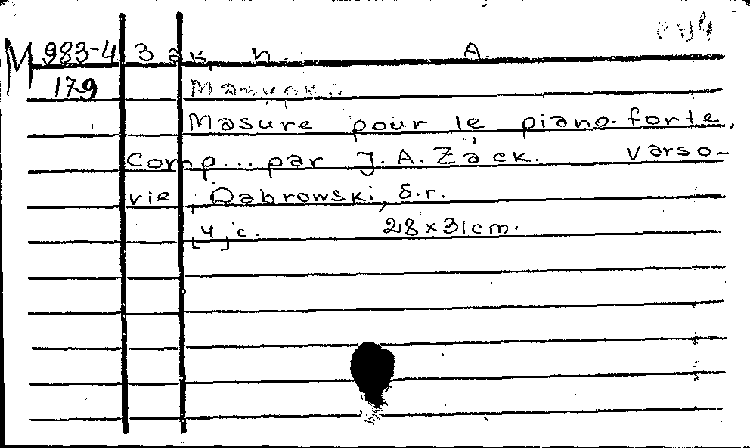 М 983-4 Зак, И. А.
179 Мазурка
Masure pour le piano-forte,
comp... par J.A. Zack. Varso-
vie, Dabrowski, s.r.
[4] с. 28 x 31 cm.